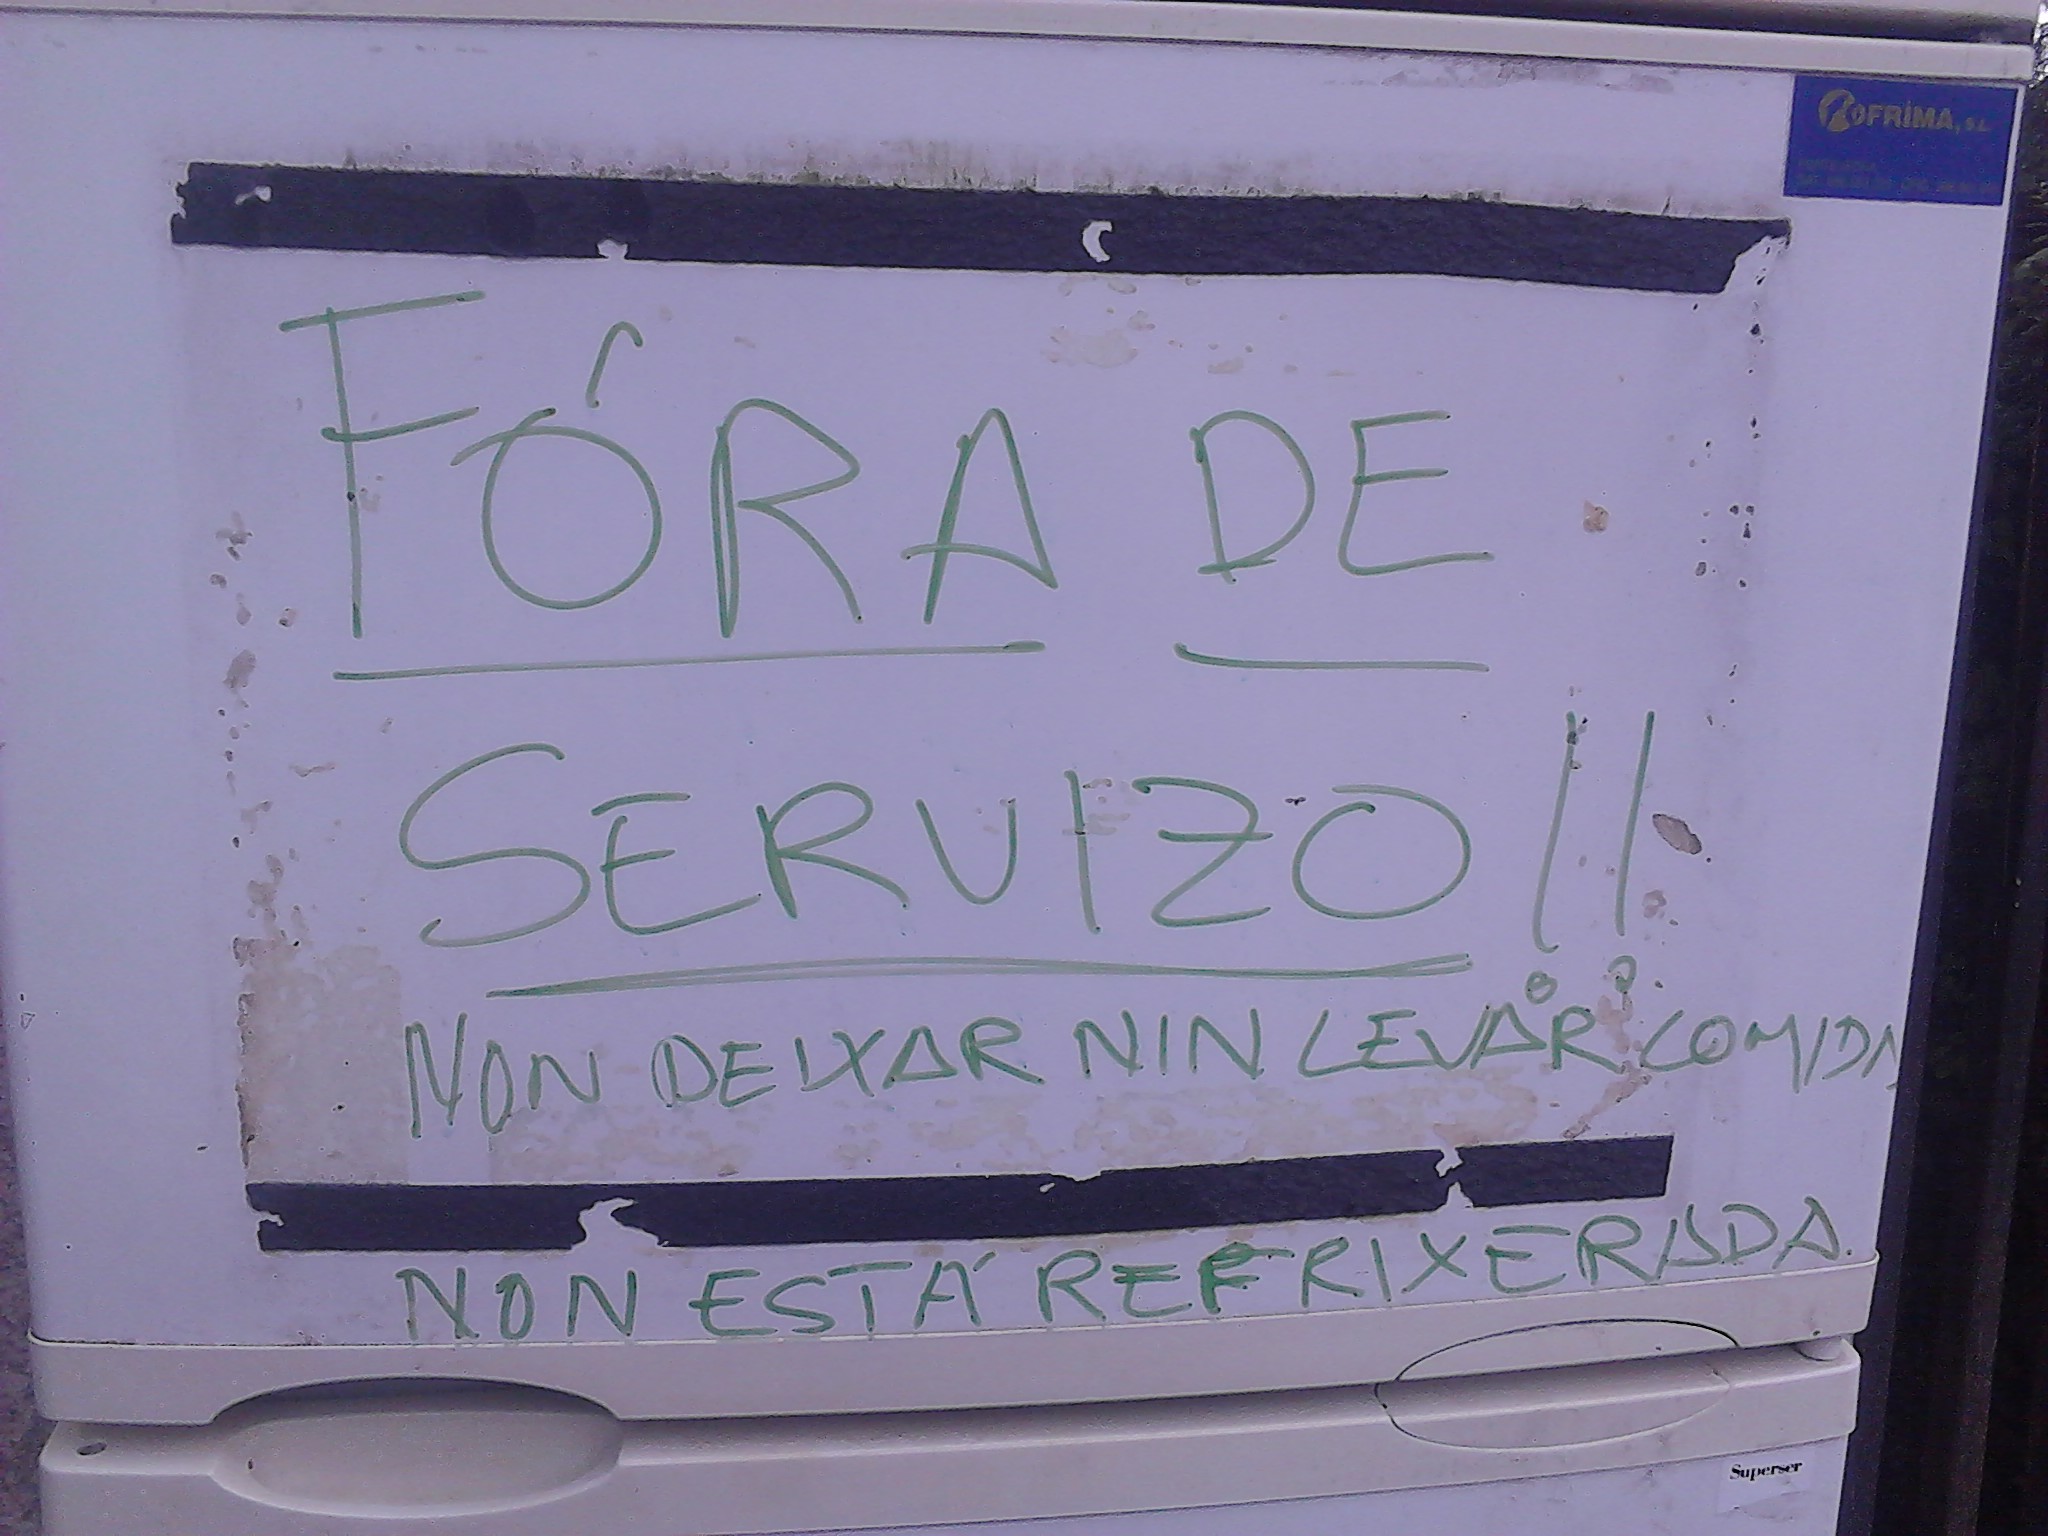 ROFRIMA, S.L.
FÓRA DE
SERVIZO!!
NON DEIXAR NIN LEVAR COMIDA
NON ESTÁ REFRIXERADA.
Superser